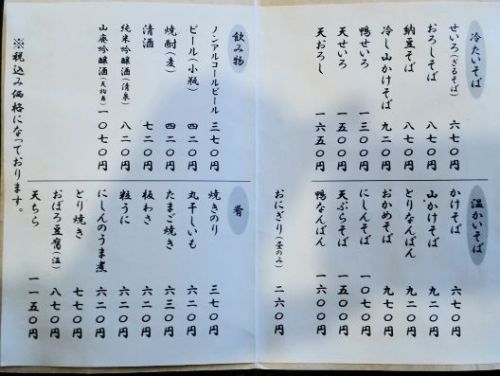 冷たいそば
せいろ(ざるそば) 六七〇円
おろしそば 八七〇円
納豆そば 八七〇円
冷し山かけそば 九二〇円
鴨せいろ 一五〇〇円
天せいろ 一五〇〇円
天おろし 一六五〇円
温かいそば
かけそば 六七〇円
山かけそば 九二〇円
とりなんばん 九二〇円
おかめそば 九七〇円
にしんそば 一〇七〇円
天ぷらそば 一五〇〇円
鴨なんばん 一六〇〇円
おにぎり(昼のみ) 二六〇円
飲み物
ノンアルコールビール 三七〇円
ビール(小瓶) 四二〇円
焼酎(麦) 四二〇円
清酒 七二〇円
純米吟醸酒(清泉) 八二〇円
山廃吟醸酒(天狗舞) 一〇七〇円
肴
焼きのり 三七〇円
丸干しいも 六二〇円
たまご焼き 六三〇円
板わさ 六二〇円
粒うに 六二〇円
にしんのうま煮 六二〇円
とり焼き 七七〇円
おぼろ豆腐(温) 八七〇円
天ちら 一一五〇円
※税込み価格になっております。